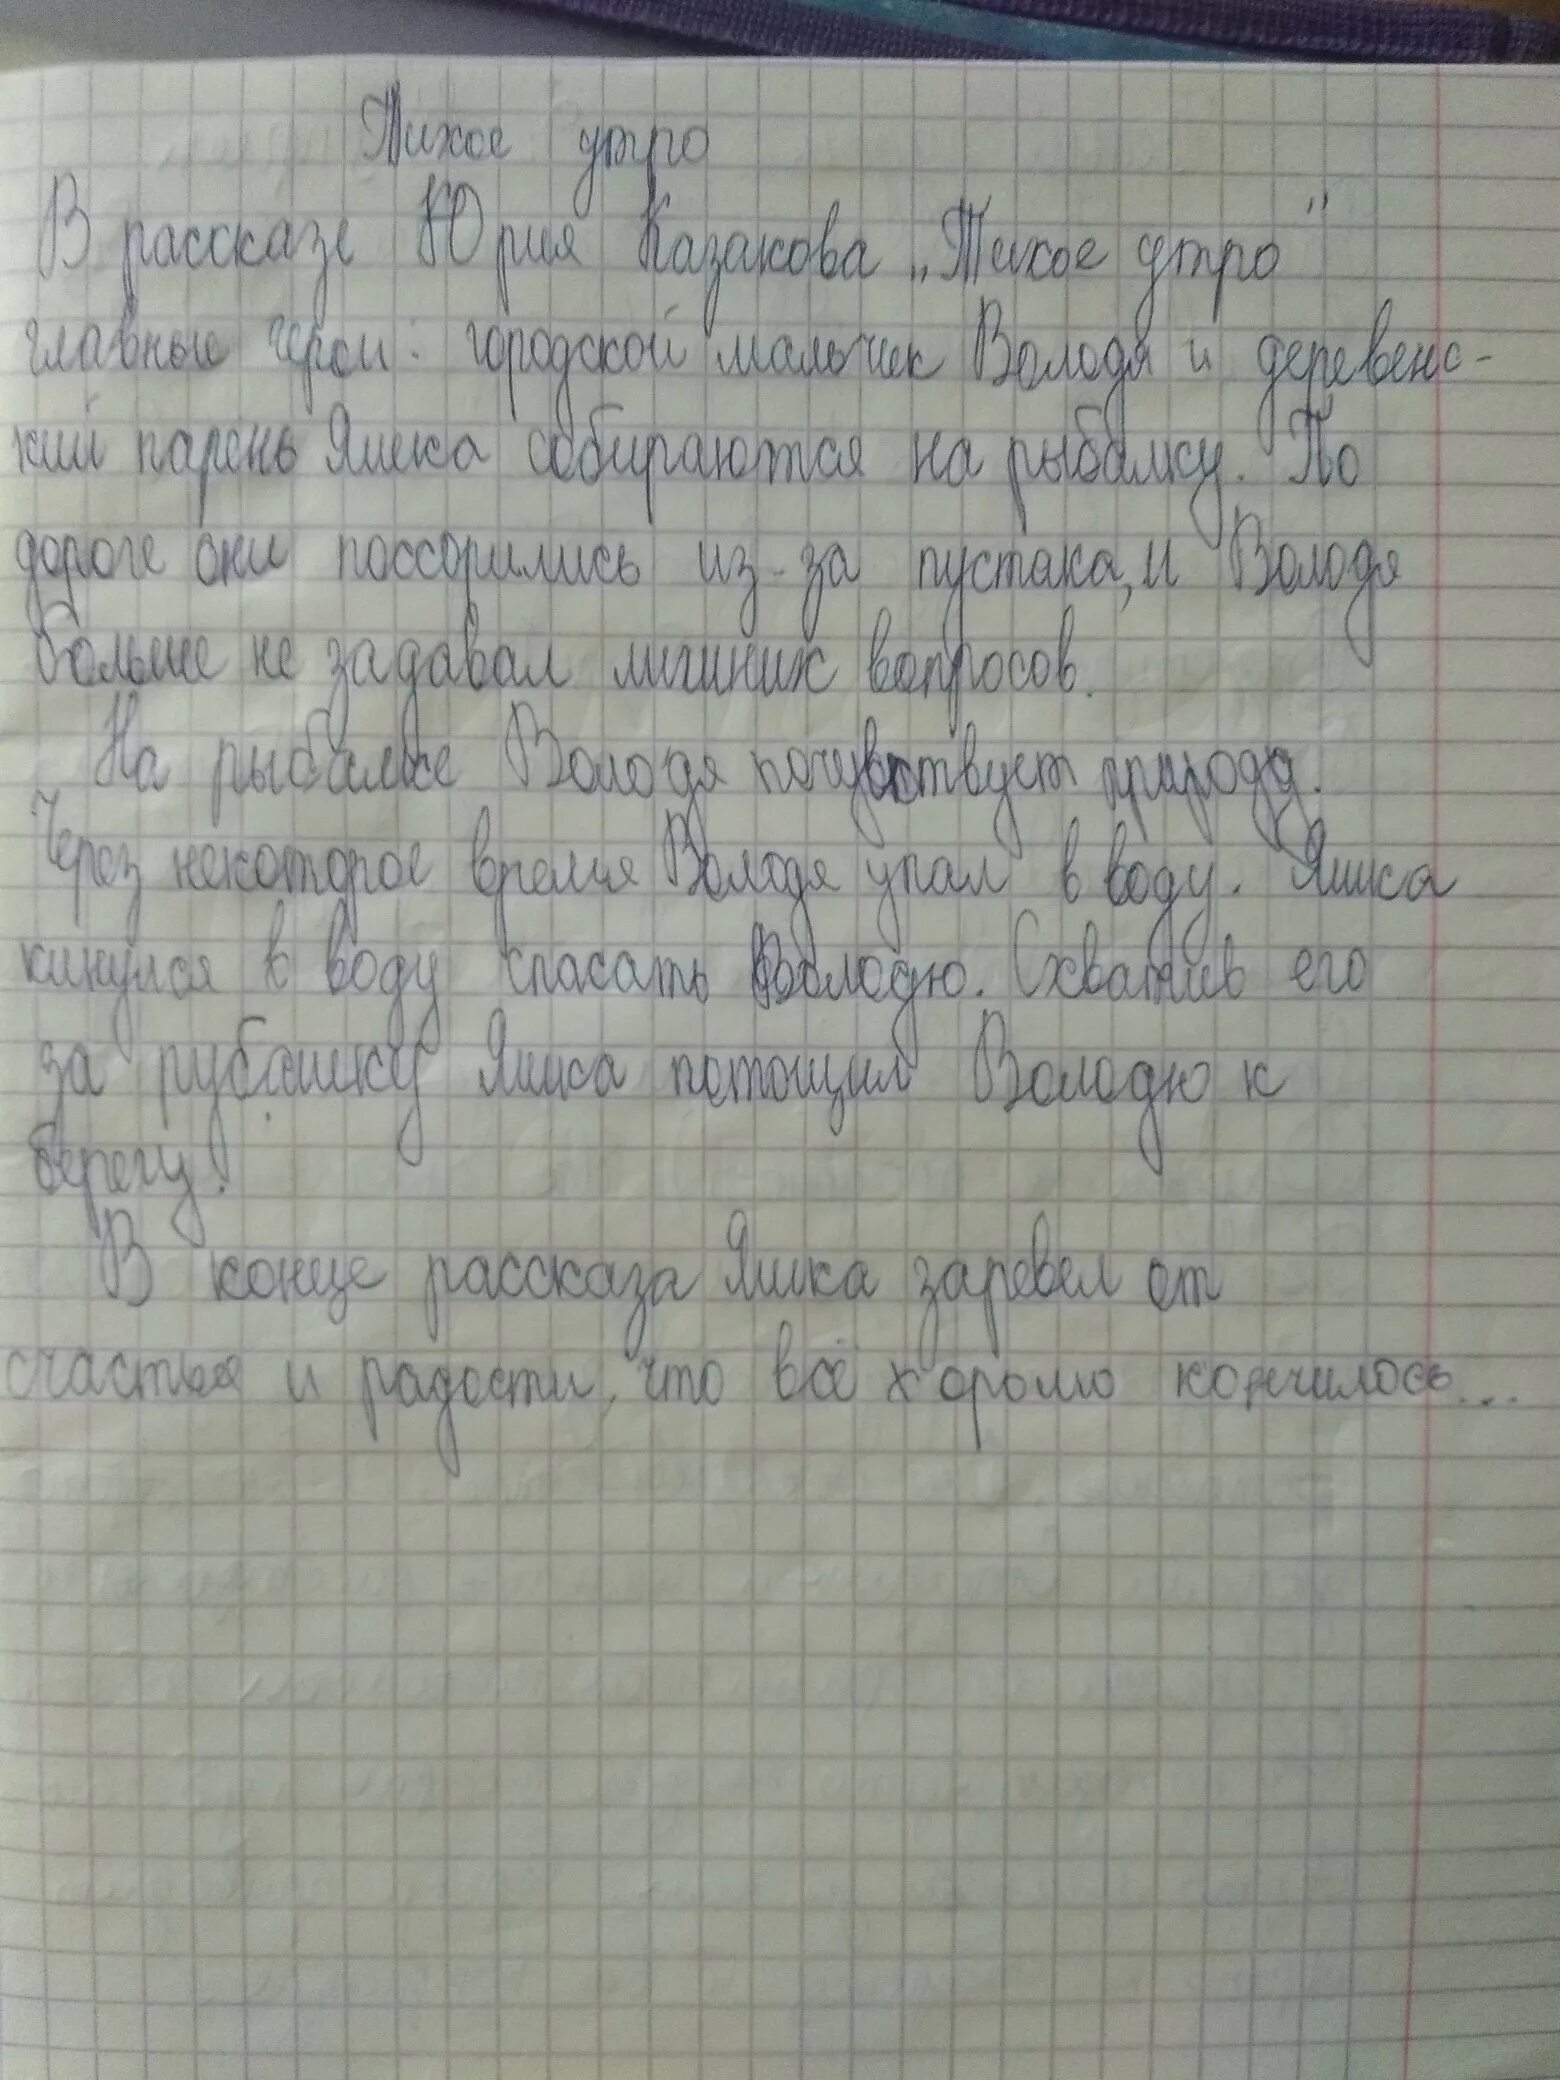 Тихое утро
В рассказе Юрия Казакова „Тихое утро"
главные герои: городской мальчик Володя и деревенс-
кий парень Яшка собираются на рыбалку. По
дороге они поссорились из-за пустака, и Володя
больше не задавал лишних вопросов.
На рыбалке Володя почувствует природу.
Через некоторое время Володя упал в воду. Яшка
кинулся в воду спасать Володю. Схватив его
за рубашку Яшка потощил Володю к
берегу.
В конце рассказа Яшка заревел от
счастья и радости, что всё хорошо кончилось...